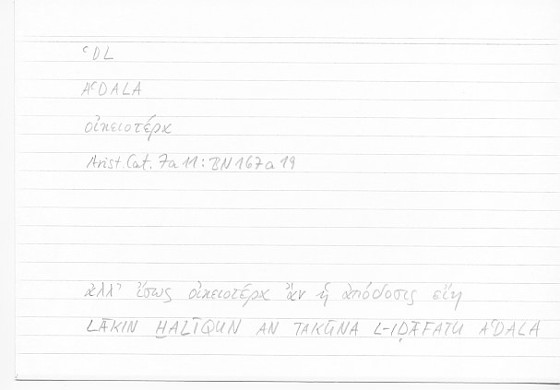 ʿDL
AʿDALA
οἰκειοτέρα
Arist. Cat. 7a11 : BN 167a19
ἀλλ' ἴσως οἰκειοτέρα ἂν ἡ ἀπόδοσις εἴη
LĀKIN ḪALĪQUN AN TAKŪNA L-IḌĀFATU AʿDALA